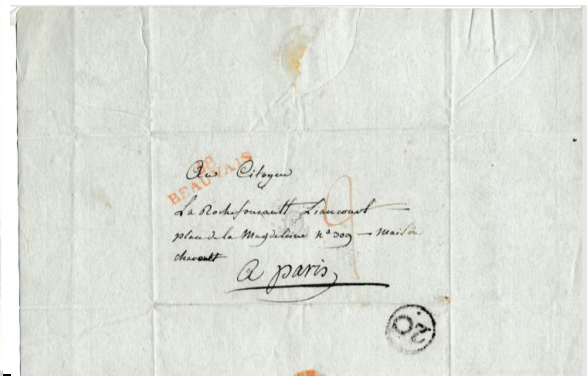 BEAUVAIS
Au Citoyen
La Rochefoucault Liancourt
place de la Magdeleine n° 309 — Maison
chavault
a paris
20